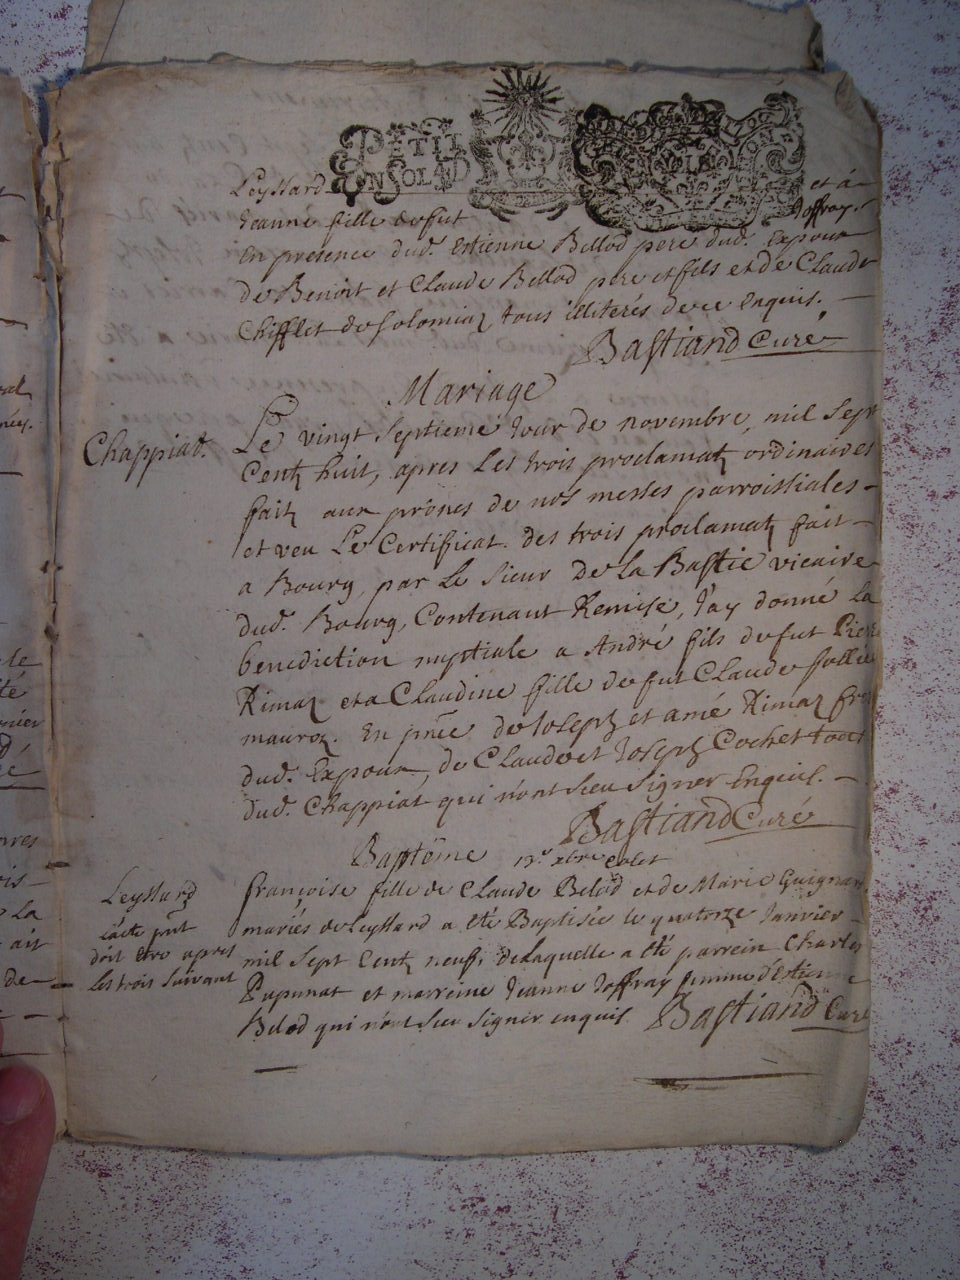 PETIT
EN SOL. IID
Leyssard et à
Jeanne fille de fut Joffray.
En presence dud. Estienne Bellod pere dud. Expoux
de Benoit et Claude Bellod pere et fils et de Claude
Chifflet de Solomiaz tous illiterés de ce Enquis.
Bastiand Curé
Mariage
Chappiat.
Le vingt Septieme Jour de novembre, mil Sept
Centz huit, apres Les trois proclamatz ordinaires
faitz aux prônes de nos messes parroissiales
et veu Le Certificat des trois proclamatz fait
a Bourg, par Le Sieur De La Bastie vicaire
dud. Bourg, Contenant Remise, J'ay donné La
benediction nuptiale a André fils de fut Pierre
Rimaz et a Claudine fille de fut Claude follie
mauroz. En pñce de Joseph et amé Rimaz fr
dud. Expoux, de Claude et Joseph Cochet tout
dud. Chappiat qui n'ont sceu signer Enquis.
Bastiand Curé
Baptême
Leyssard
l'acte
doit etre apres
les trois suivant
françoise fille de Claude Belod et de Marie Guignar
mariés de Leyssard a été Baptisée le quatorze Janvier
mil Sept Centz neuf, de laquelle a été parrein Charles
Pupunat et marreine Jeanne Joffray femme d'Estienne
Belod qui n'ont sceu signer enquis. Bastiand Curé